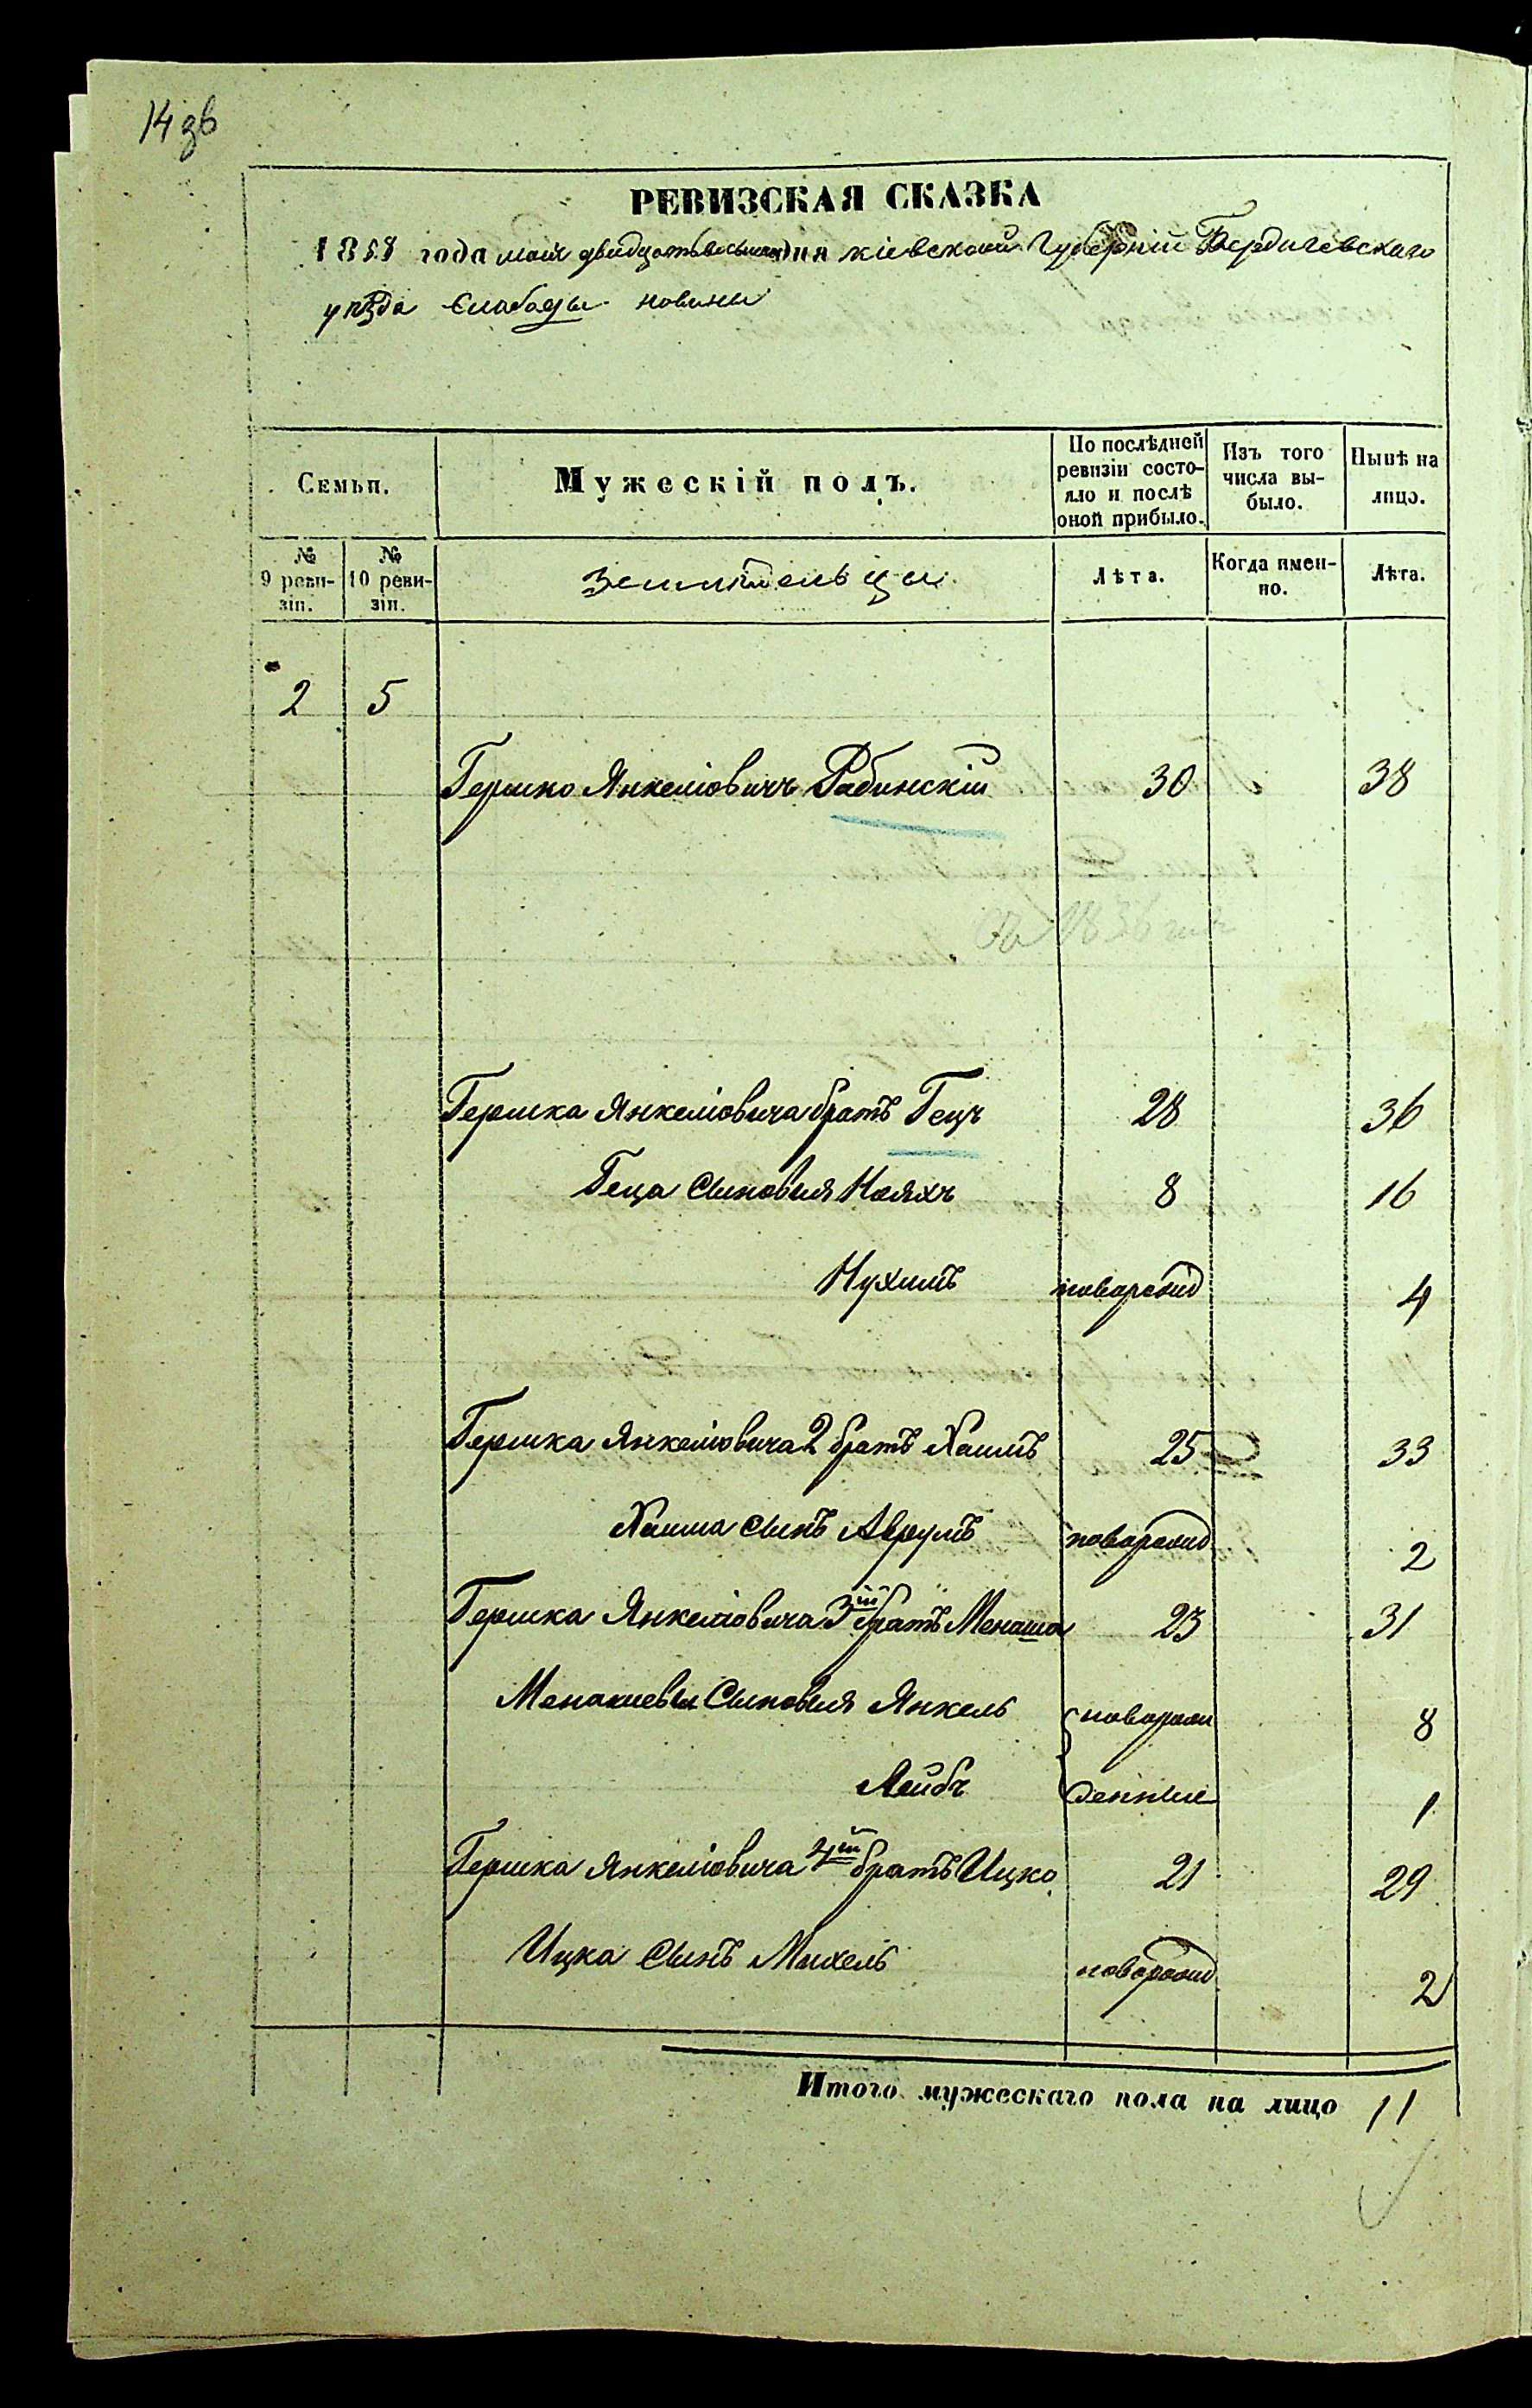 14 зв
РЕВИЗСКАЯ СКАЗКА
1858 года мая двидцатьвосьмаго дня кіевской Губерніи Бердичевскаго
уѣзда Слабоды новины
Семьи.
Мужескій полъ.
По послѣдней ревизіи состо-
яло и послѣ оной прибыло.
Изъ того числа вы-
было.
Нынѣ на лицо.
№ 9 реви-
зіи.
№ 10 реви-
зіи.
Земледельцы
Лѣта.
Когда имен-
но.
Лѣта.
2 5
Гершко Янкеліовичъ Рабинскій 30 38
1836
Гершка Янкеліовича братъ Гецъ 28 36
Геца Сыновья Маляхъ 8 16
Нухимъ новорожд 4
Гершка Янкеліовича 2 братъ Хаимъ 25 33
Хаима Сынъ Аврумъ новорожд 2
Гершка Янкеліовича 3ій братъ Менаша 23 31
Менашевы Сыновья Янкель новорож 8
Лейбъ денные 1
Гершка Янкеліовича 4ый братъ Ицко 21 29
Ицка Сынъ Михель новорожд 2
Итого мужескаго пола на лицо 11